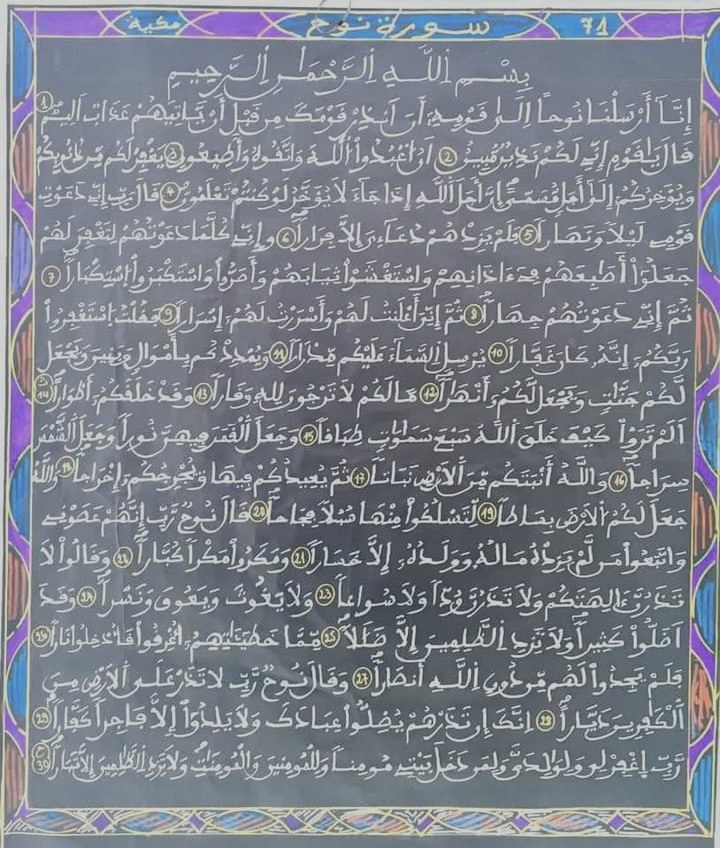 71 سورة نوح مكية
بِسْمِ اللَّهِ الرَّحْمَٰنِ الرَّحِيمِ
إِنَّآ أَرْسَلْنَا نُوحاً إِلَىٰ قَوْمِهِۦٓ أَنَ انذِرْ قَوْمَكَ مِن قَبْلِ أَنْ يَّاتِيَهُمْ عَذَابٌ اَلِيمٌ 1
قَالَ يَٰقَوْمِ إِنِّي لَكُمْ نَذِيرٌ مُّبِينٌ 2 اَنُ اعْبُدُواْ اللَّهَ وَاتَّقُوهُ وَأَطِيعُونِ 3 يَغْفِرْ لَكُم مِّن ذُنُوبِكُمْ
وَيُؤَخِّرْكُمُۥٓ إِلَىٰٓ أَجَلٍ مُّسَمًّىٰ إِنَّ أَجَلَ اللَّهِ إِذَا جَآءَ لَا يُؤَخَّرُ لَوْ كُنتُمْ تَعْلَمُونَ 4 قَالَ رَبِّ إِنِّي دَعَوْتُ
قَوْمِي لَيْلًا وَنَهَاراً 5 فَلَمْ يَزِدْهُمْ دُعَآءِيَ إِلَّا فِرَاراً 6 وَإِنِّي كُلَّمَا دَعَوْتُهُمْ لِتَغْفِرَ لَهُمْ
جَعَلُوٓاْ أَصَٰبِعَهُمْ فِےٓ ءَاذَانِهِمْ وَاسْتَغْشَوْاْ ثِيَابَهُمْ وَأَصَرُّواْ وَاسْتَكْبَرُواْ اسْتِكْبَاراً 7
ثُمَّ إِنِّي دَعَوْتُهُمْ جِهَاراً 8 ثُمَّ إِنِّيَ أَعْلَنتُ لَهُمْ وَأَسْرَرْتُ لَهُمُۥٓ إِسْرَاراً 9 فَقُلْتُ اسْتَغْفِرُواْ
رَبَّكُمُۥٓ إِنَّهُۥ كَانَ غَفَّاراً 10 يُرْسِلِ السَّمَآءَ عَلَيْكُم مِّدْرَاراً 11 وَيُمْدِدْكُم بِأَمْوَٰلٍ وَبَنِينَ وَيَجْعَل
لَّكُمْ جَنَّٰتٍ وَيَجْعَل لَّكُمُۥٓ أَنْهَٰراً 12 مَّا لَكُمْ لَا تَرْجُونَ لِلهِ وَقَاراً 13 وَقَدْ خَلَقَكُمُۥٓ أَطْوَاراً 14
اَلَمْ تَرَوْاْ كَيْفَ خَلَقَ اللَّهُ سَبْعَ سَمَٰوَٰتٍ طِبَاقاً 15 وَجَعَلَ الْقَمَرَ فِيهِنَّ نُوراً وَجَعَلَ الشَّمْسَ
سِرَاجاً 16 وَاللَّهُ أَنۢبَتَكُم مِّنَ الْأَرْضِ نَبَاتاً 17 ثُمَّ يُعِيدُكُمْ فِيهَا وَيُخْرِجُكُمُۥٓ إِخْرَاجاً 18 وَاللَّهُ
جَعَلَ لَكُمُ الْأَرْضَ بِسَاطاً 19 لِّتَسْلُكُواْ مِنْهَا سُبُلًا فِجَاجاً 20 قَالَ نُوحٌ رَّبِّ إِنَّهُمْ عَصَوْنِے
وَاتَّبَعُواْ مَن لَّمْ يَزِدْهُ مَالُهُۥ وَوَلَدُهُۥٓ إِلَّا خَسَاراً 21 وَمَكَرُواْ مَكْراً كُبَّاراً 22 وَقَالُواْ لَا
تَذَرُنَّ ءَالِهَتَكُمْ وَلَا تَذَرُنَّ وُدّاً وَلَا سُوَاعاً 23 وَلَا يَغُوثَ وَيَعُوقَ وَنَسْراً 24 وَقَدَ
اَضَلُّواْ كَثِيراً وَلَا تَزِدِ الظَّٰلِمِينَ إِلَّا ضَلَٰلًا 25 مِّمَّا خَطِيٓـَٰٔتِهِمُۥٓ أُغْرِقُواْ فَأُدْخِلُواْ نَاراً 26
فَلَمْ يَجِدُواْ لَهُم مِّن دُونِ اللَّهِ أَنصَاراً 27 وَقَالَ نُوحٌ رَّبِّ لَا تَذَرْ عَلَى الْأَرْضِ مِنَ
الْكَٰفِرِينَ دَيَّاراً 28 اِنَّكَ إِن تَذَرْهُمْ يُضِلُّواْ عِبَادَكَ وَلَا يَلِدُوٓاْ إِلَّا فَاجِراً كَفَّاراً 29
رَّبِّ اغْفِرْ لِي وَلِوَٰلِدَيَّ وَلِمَن دَخَلَ بَيْتِي مُومِناً وَلِلْمُومِنِينَ وَالْمُومِنَٰتِ وَلَا تَزِدِ الظَّٰلِمِينَ إِلَّا تَبَاراً 30